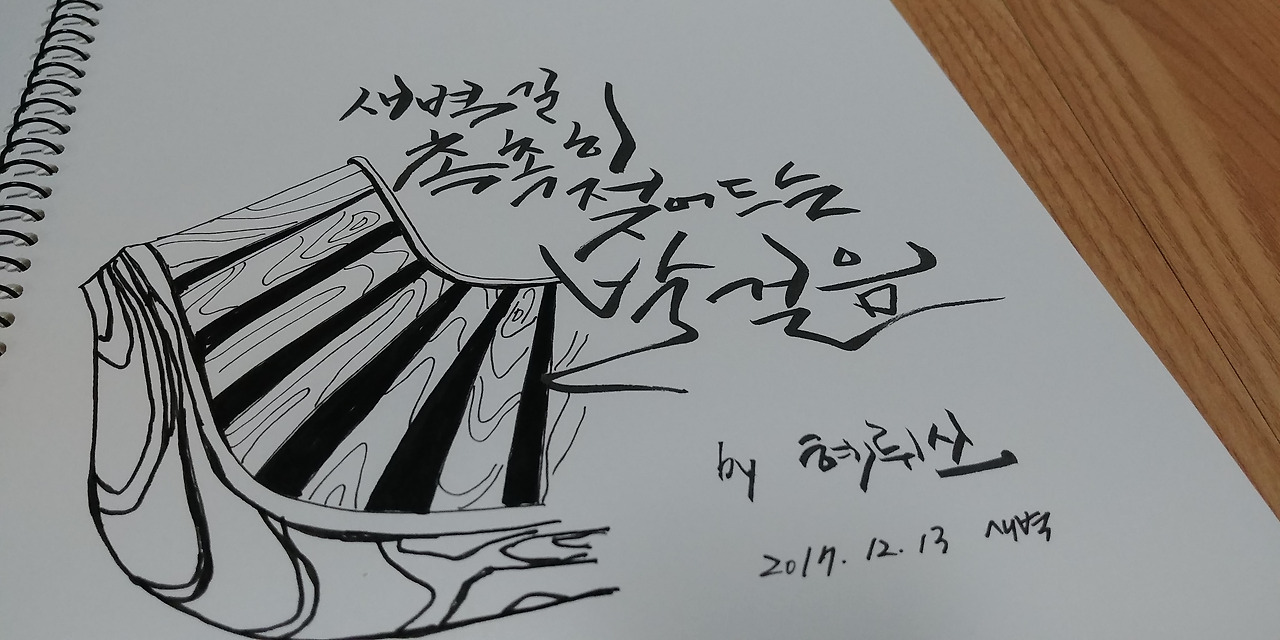 새벽길
촉촉히
젖어드는
발걸음
by 혜뤼산
2017. 12. 13 새벽